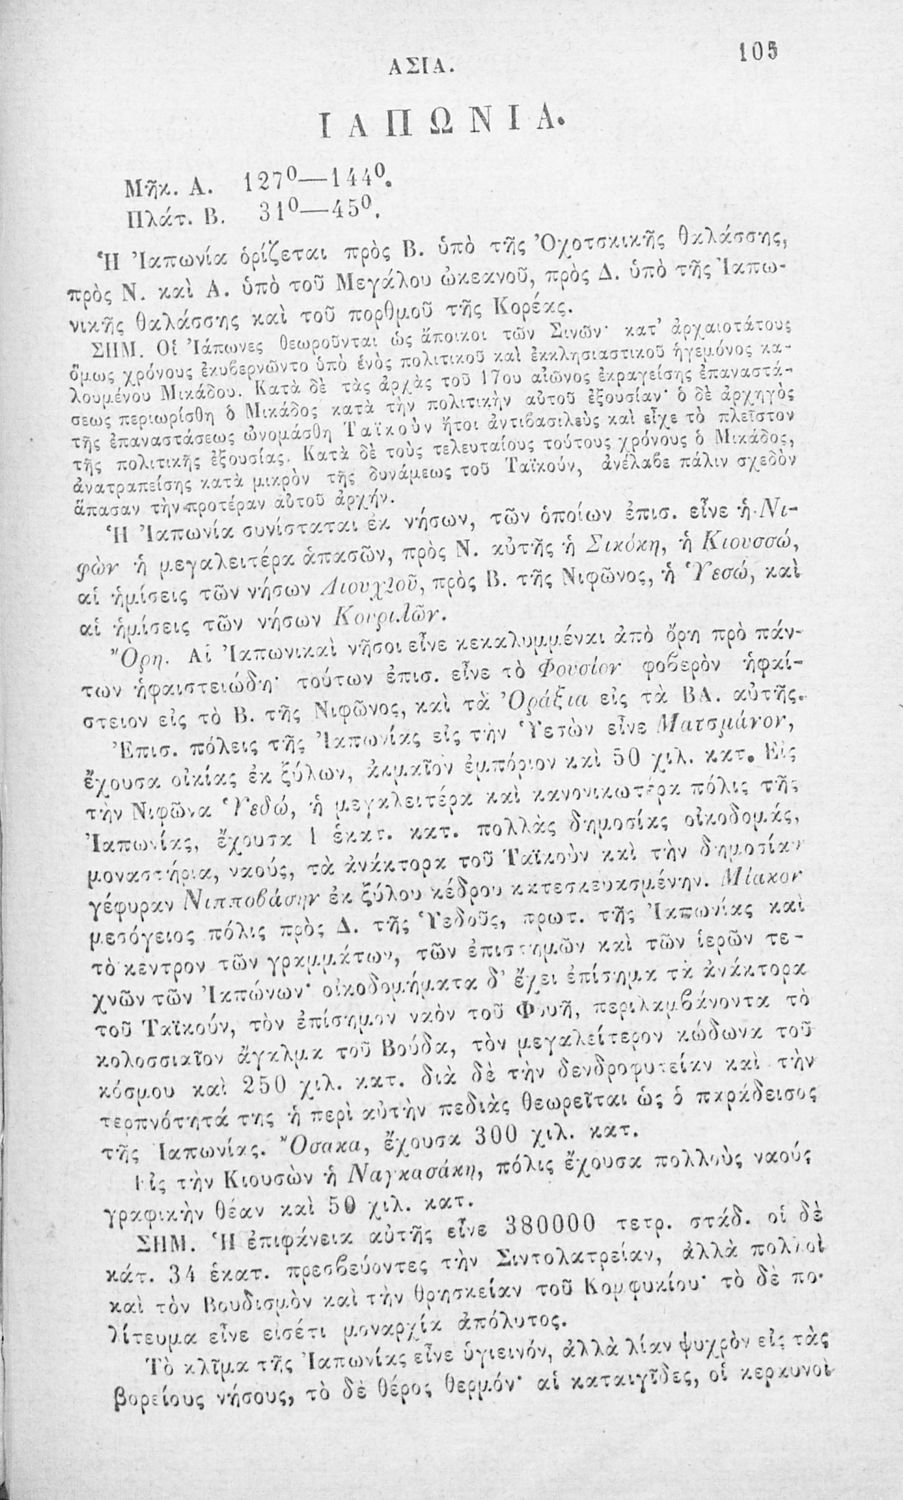 ΑΣΙΑ.
105
ΙΑΠΩΝΙΑ.
Μῆκ. Α. 127⁰—144⁰.
Πλάτ. Β. 31⁰—45⁰.
Ἡ Ἰαπωνία ὁρίζεται πρὸς Β. ὑπὸ τῆς Ὀχοτσκικῆς θαλάσσης,
πρὸς Ν. καὶ Α. ὑπὸ τοῦ Μεγάλου ὠκεανοῦ, πρὸς Δ. ὑπὸ τῆς Ἰαπω-
νικῆς θαλάσσης καὶ τοῦ πορθμοῦ τῆς Κορέας.
ΣΗΜ. Οἱ Ἰάπωνες θεωροῦνται ὡς ἄποικοι τῶν Σινῶν· κατ' ἀρχαιοτάτους
ὅμως χρόνους ἐκυβερνῶντο ὑπὸ ἑνὸς πολιτικοῦ καὶ ἐκκλησιαστικοῦ ἡγεμόνος κα-
λουμένου Μικάδου. Κατὰ δὲ τὰς ἀρχὰς τοῦ 17ου αἰῶνος ἐκραγείσης ἐπαναστά-
σεως περιωρίσθη ὁ Μικάδος κατὰ τὴν πολιτικὴν αὐτοῦ ἐξουσίαν· ὁ δὲ ἀρχηγὸς
τῆς ἐπαναστάσεως ὠνομάσθη Ταϊκοὺν ἤτοι ἀντιβασιλεὺς καὶ εἶχε τὸ πλεῖστον
τῆς πολιτικῆς ἐξουσίας. Κατὰ δὲ τοὺς τελευταίους τούτους χρόνους ὁ Μικάδος,
ἀνατραπείσης κατὰ μικρὸν τῆς δυνάμεως τοῦ Ταϊκούν, ἀνέλαβε πάλιν σχεδὸν
ἅπασαν τὴν προτέραν αὐτοῦ ἀρχήν.
Ἡ Ἰαπωνία συνίσταται ἐκ νήσων, τῶν ὁποίων ἐπισ. εἶνε ἡ Νι-
φὼν ἡ μεγαλειτέρα ἁπασῶν, πρὸς Ν. αὐτῆς ἡ Σικόκη, ἡ Κιουσσώ,
αἱ ἡμίσεις τῶν νήσων Λιουχιοῦ, πρὸς Β. τῆς Νιφῶνος, ἡ Ὑεσώ, καὶ
αἱ ἡμίσεις τῶν νήσων Κουριλῶν.
Ὄρη. Αἱ Ἰαπωνικαὶ νῆσοι εἶνε κεκαλυμμέναι ἀπὸ ὄρη πρὸ πάν-
των ἡφαιστειώδη· τούτων ἐπισ. εἶνε τὸ Φουσίον φοβερὸν ἡφαί-
στειον εἰς τὸ Β. τῆς Νιφῶνος, καὶ τὰ Ὀράξια εἰς τὰ ΒΑ. αὐτῆς.
Ἐπισ. πόλεις τῆς Ἰαπωνίας εἰς τὴν Ὑετὼν εἶνε Ματσμάνον,
ἔχουσα οἰκίας ἐκ ξύλων, ἀκμαῖον ἐμπόριον καὶ 50 χιλ. κατ. Εἰς
τὴν Νιφῶνα Ὑεδώ, ἡ μεγαλειτέρα καὶ κανονικωτέρα πόλις τῆς
Ἰαπωνίας, ἔχουσα 1 ἑκατ. κατ. πολλὰς δημοσίας οἰκοδομάς,
μοναστήρια, ναούς, τὰ ἀνάκτορα τοῦ Ταϊκοὺν καὶ τὴν δημοσίαν
γέφυραν Νιπποβάσην ἐκ ξύλου κέδρου κατεσκευασμένην. Μίακον
μεσόγειος πόλις πρὸς Δ. τῆς Ὑεδοῦς, πρωτ. τῆς Ἰαπωνίας καὶ
τὸ κέντρον τῶν γραμμάτων, τῶν ἐπιστημῶν καὶ τῶν ἱερῶν τε-
χνῶν τῶν Ἰαπώνων· οἰκοδομήματα δ' ἔχει ἐπίσημα τὰ ἀνάκτορα
τοῦ Ταϊκούν, τὸν ἐπίσημον ναὸν τοῦ Φουῆ, περιλαμβάνοντα τὸ
κολοσσιαῖον ἄγαλμα τοῦ Βούδα, τὸν μεγαλείτερον κώδωνα τοῦ
κόσμου καὶ 250 χιλ. κατ. διὰ δὲ τὴν δενδροφυτείαν καὶ τὴν
τερπνότητά της ἡ περὶ αὐτὴν πεδιὰς θεωρεῖται ὡς ὁ παράδεισος
τῆς Ἰαπωνίας. Ὄσακα, ἔχουσα 300 χιλ. κατ.
Εἰς τὴν Κιουσὼν ἡ Ναγκασάκη, πόλις ἔχουσα πολλοὺς ναούς
γραφικὴν θέαν καὶ 50 χιλ. κατ.
ΣΗΜ. Ἡ ἐπιφάνεια αὐτῆς εἶνε 380000 τετρ. στάδ. οἱ δὲ
κάτ. 34 ἑκατ. πρεσβεύοντες τὴν Σιντολατρείαν, ἀλλὰ πολλοὶ
καὶ τὸν Βουδισμὸν καὶ τὴν θρησκείαν τοῦ Κομφυκίου· τὸ δὲ πο-
λίτευμα εἶνε εἰσέτι μοναρχία ἀπόλυτος.
Τὸ κλῖμα τῆς Ἰαπωνίας εἶνε ὑγιεινόν, ἀλλὰ λίαν ψυχρὸν εἰς τὰς
βορείους νήσους, τὸ δὲ θέρος θερμόν· αἱ καταιγῖδες, οἱ κεραυνοὶ